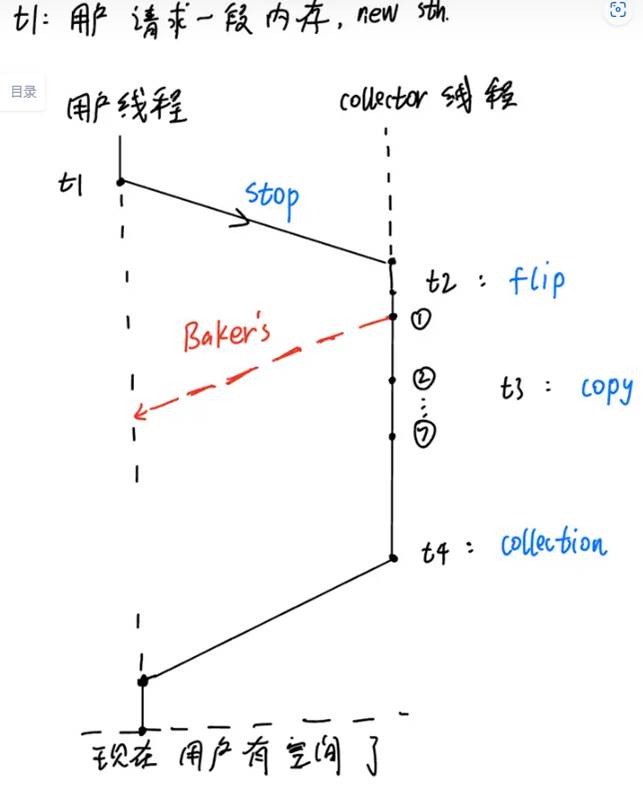 t1: 用户 请求一段内存, new sth.
目录
用户线程
collector 线程
t1
stop
t2 : flip
Baker's
①
②
⋮
⑦
t3 : copy
t4 : collection
现在 用户有空间了